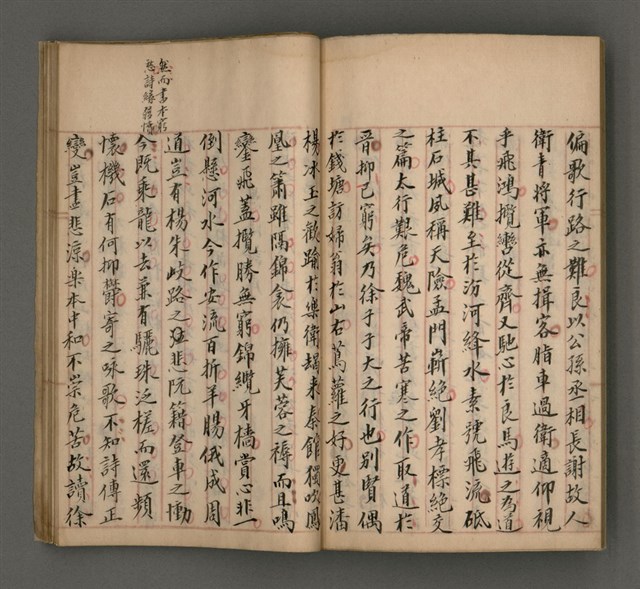 偏歌行路之難良以公孫丞相長謝故人
衛青將軍亦無揖客脂車過衛適仰視
乎飛鴻攬轡從齊又馳心於良馬遊之為道
不其甚難至於汾河絳水素號飛流砥
柱石城夙稱天險孟門嶄絕劉孝標絕交
之篇太行艱危魏武帝苦寒之作取道於
晉抑已窮矣乃徐子于大之行也別賢偶
於錢塘訪婦翁於山右蔦蘿之好更甚潘
楊冰玉之歡踰於樂衛朅来秦館獨吹鳳
凰之簫雖隔錦衾仍擁芙蓉之褥而且鳴
鑾飛蓋攬勝無窮錦纜牙檣賞心非一
倒懸河水今作安流百折羊腸俄成周
道豈有楊朱歧路之悲阮籍登車之慟
今既乘龍以去兼有驪珠泛槎而還頻
懷機石有何抑鬱寄之咏歌不知詩傳正
變豈盡悲涼樂本中和不崇危苦故讀徐
然而書本窮
愁詩緣